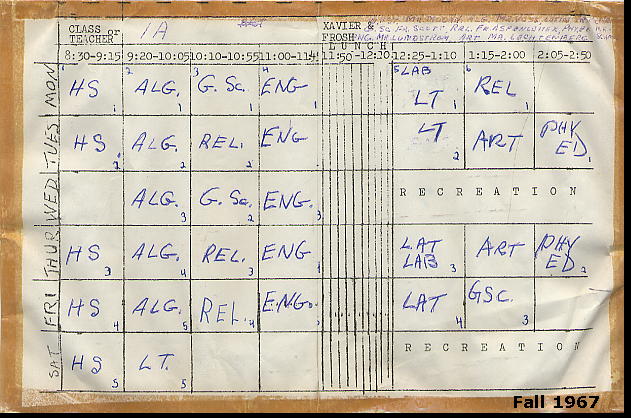 CLASS or TEACHER 1A XAVIER & FROSH LUNCH
8:30-9:15 9:20-10:05 10:10-10:55 11:00-11:45 11:50-12:20 12:25-1:10 1:15-2:00 2:05-2:50
MON HS 1 ALG. 1 G. Sc. 1 ENG 1 LAB LT 1 REL 1
TUES HS 2 ALG. 2 REL. 2 ENG LT 2 ART PHY ED. 1
WED ALG. 3 G. Sc. 2 ENG. 3 RECREATION
THUR HS 3 ALG. 4 REL. 3 ENG LAT LAB 3 ART PHY ED 2
FRI HS 4 ALG. 5 REL. 4 ENG. LAT 4 GSC. 3
SAT HS 5 LT. 5 RECREATION
Fall 1967